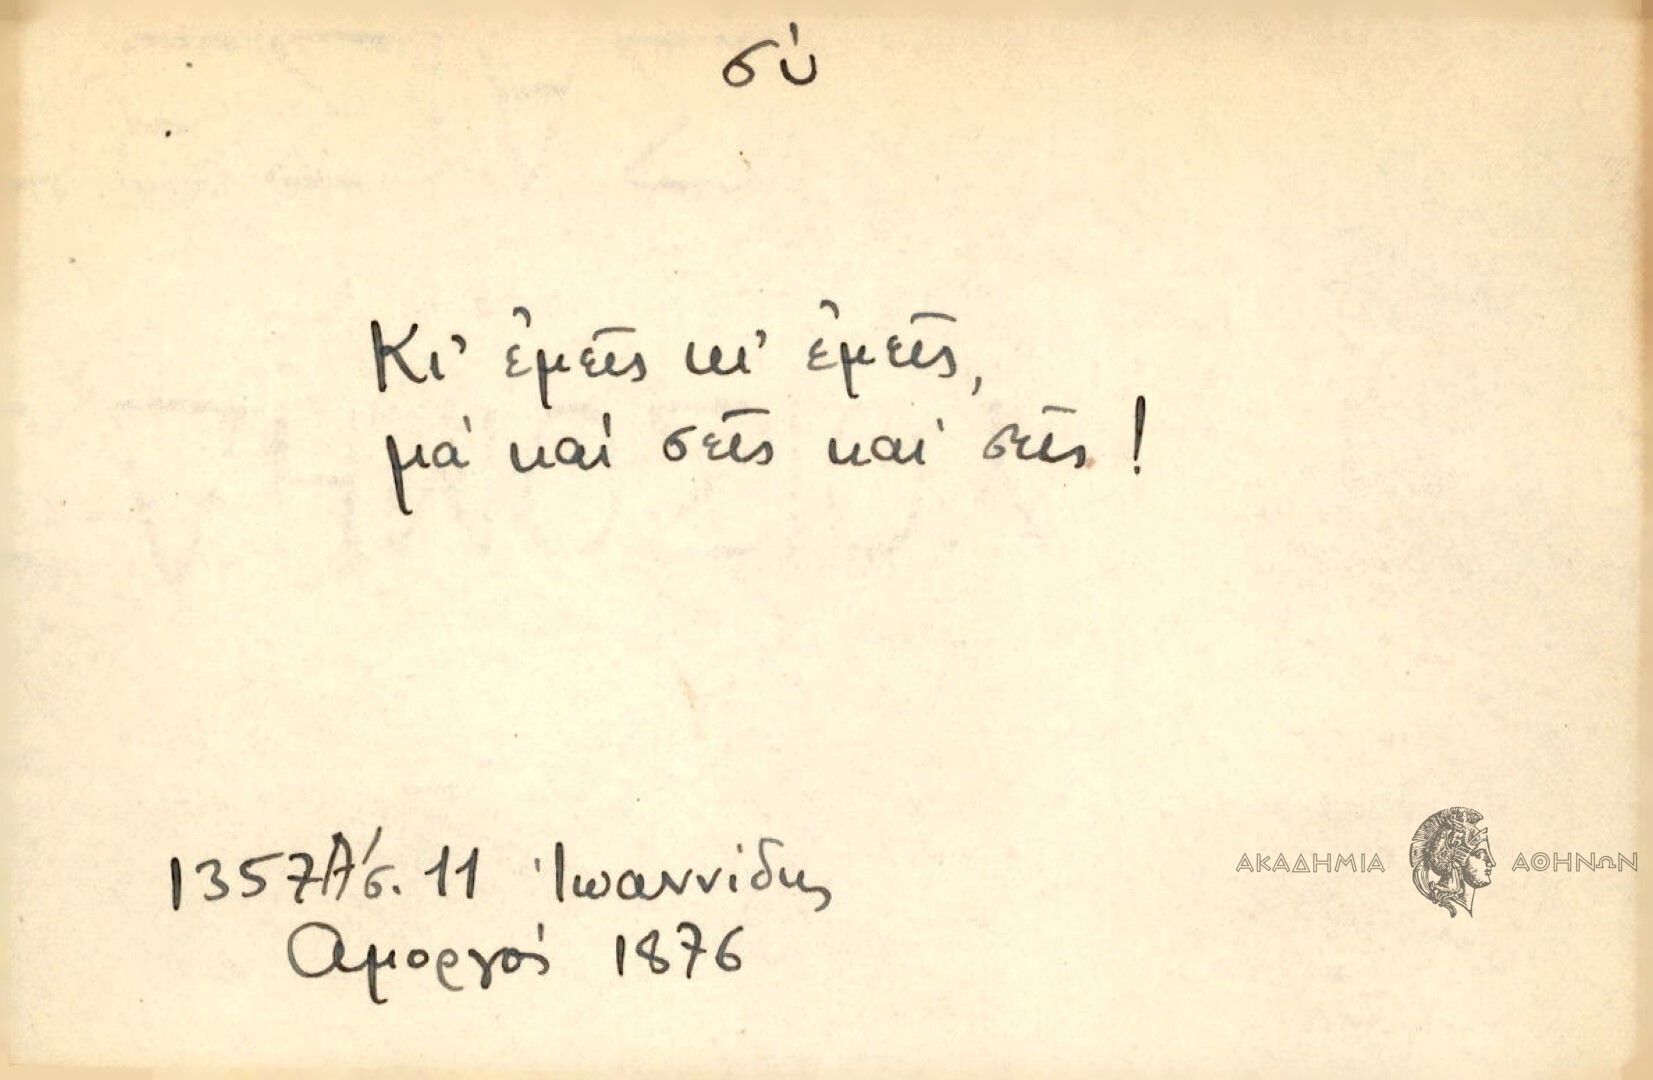 σύ
Κι' ἐμεῖς κι' ἐμεῖς,
μά καί σεῖς καί σεῖς!
1357Α' σ. 11 Ἰωαννίδης
Ἀμοργός 1876
ΑΚΑΔΗΜΙΑ ΑΘΗΝΩΝ